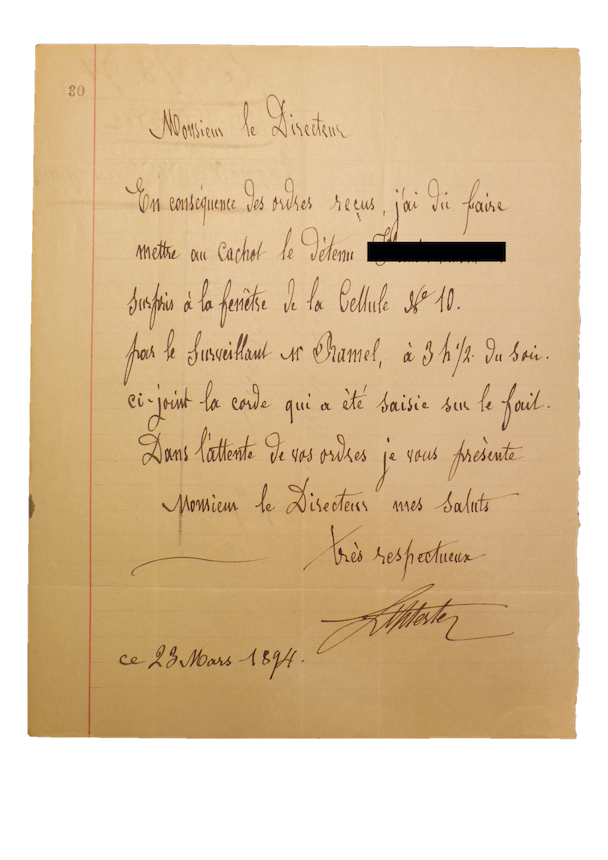 30
Monsieur le Directeur
En conséquence des ordres reçus, j'ai dû faire
mettre au cachot le détenu
surpris à la fenêtre de la Cellule No 10.
par le Surveillant Mr Ramel, à 3 h 1/2 du soir.
ci-joint la corde qui a été saisie sur le fait.
Dans l'attente de vos ordres je vous présente
Monsieur le Directeur mes saluts
très respectueux
ce 23 Mars 1894.